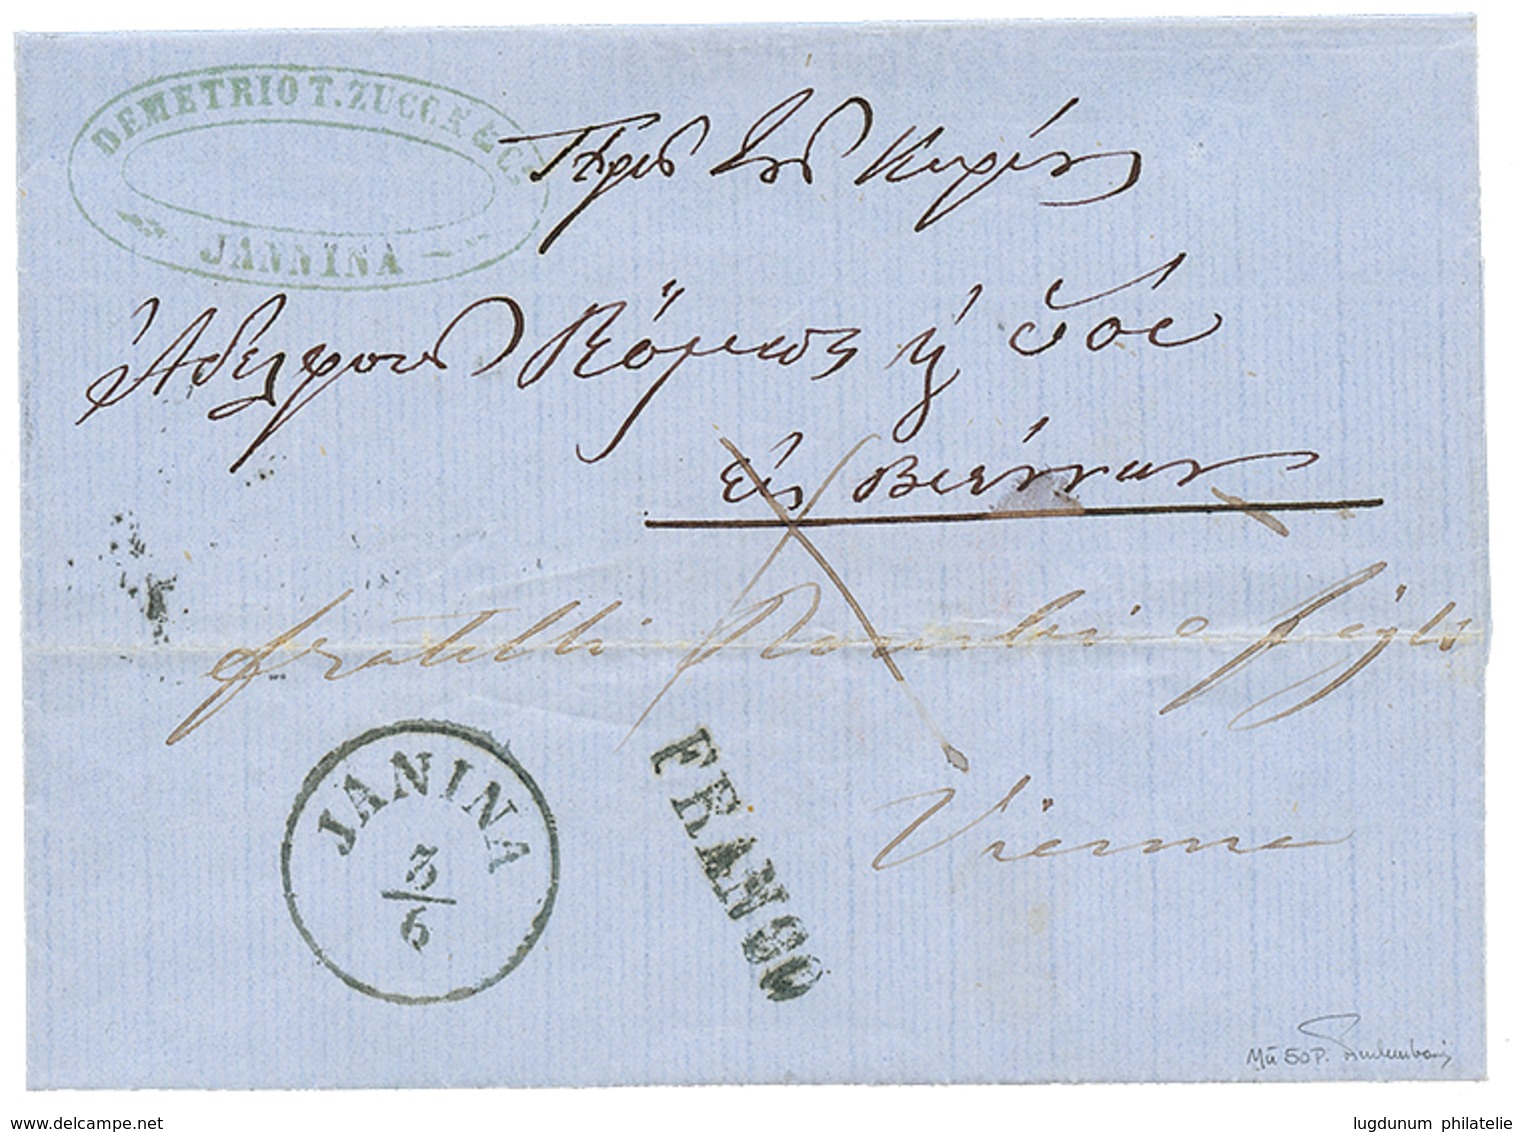 DEMETRIO T. ZUCCA & C.
JANNINA
Πρὸς τοὺς Κυρίους
Ἀδελφοὺς
εἰς Βιένναν
fratelli e figli
Vienna
JANINA
3/6
FRANCO
Mü 50P.
www.delcampe.net
lugdunum philatelie